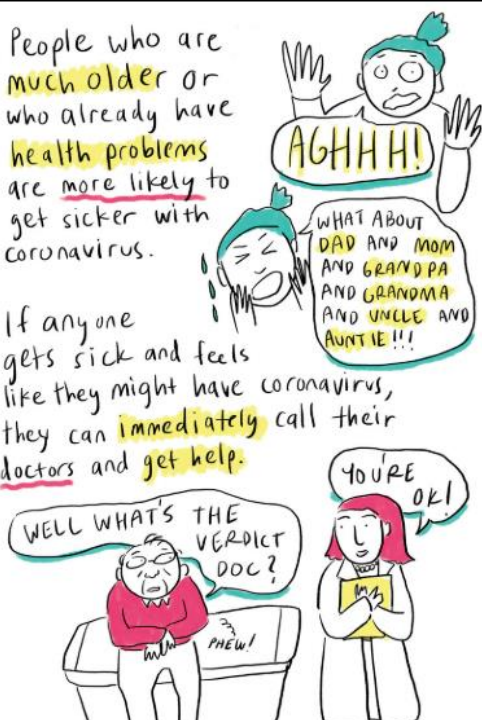 People who are
much older or
who already have
health problems
are more likely to
get sicker with
coronavirus.
AGHHH!
WHAT ABOUT
DAD AND MOM
AND GRANDPA
AND GRANDMA
AND UNCLE AND
AUNTIE!!!
If anyone
gets sick and feels
like they might have coronavirus,
they can immediately call their
doctors and get help.
WELL WHAT'S THE
VERDICT
DOC?
PHEW!
YOU'RE
OK!